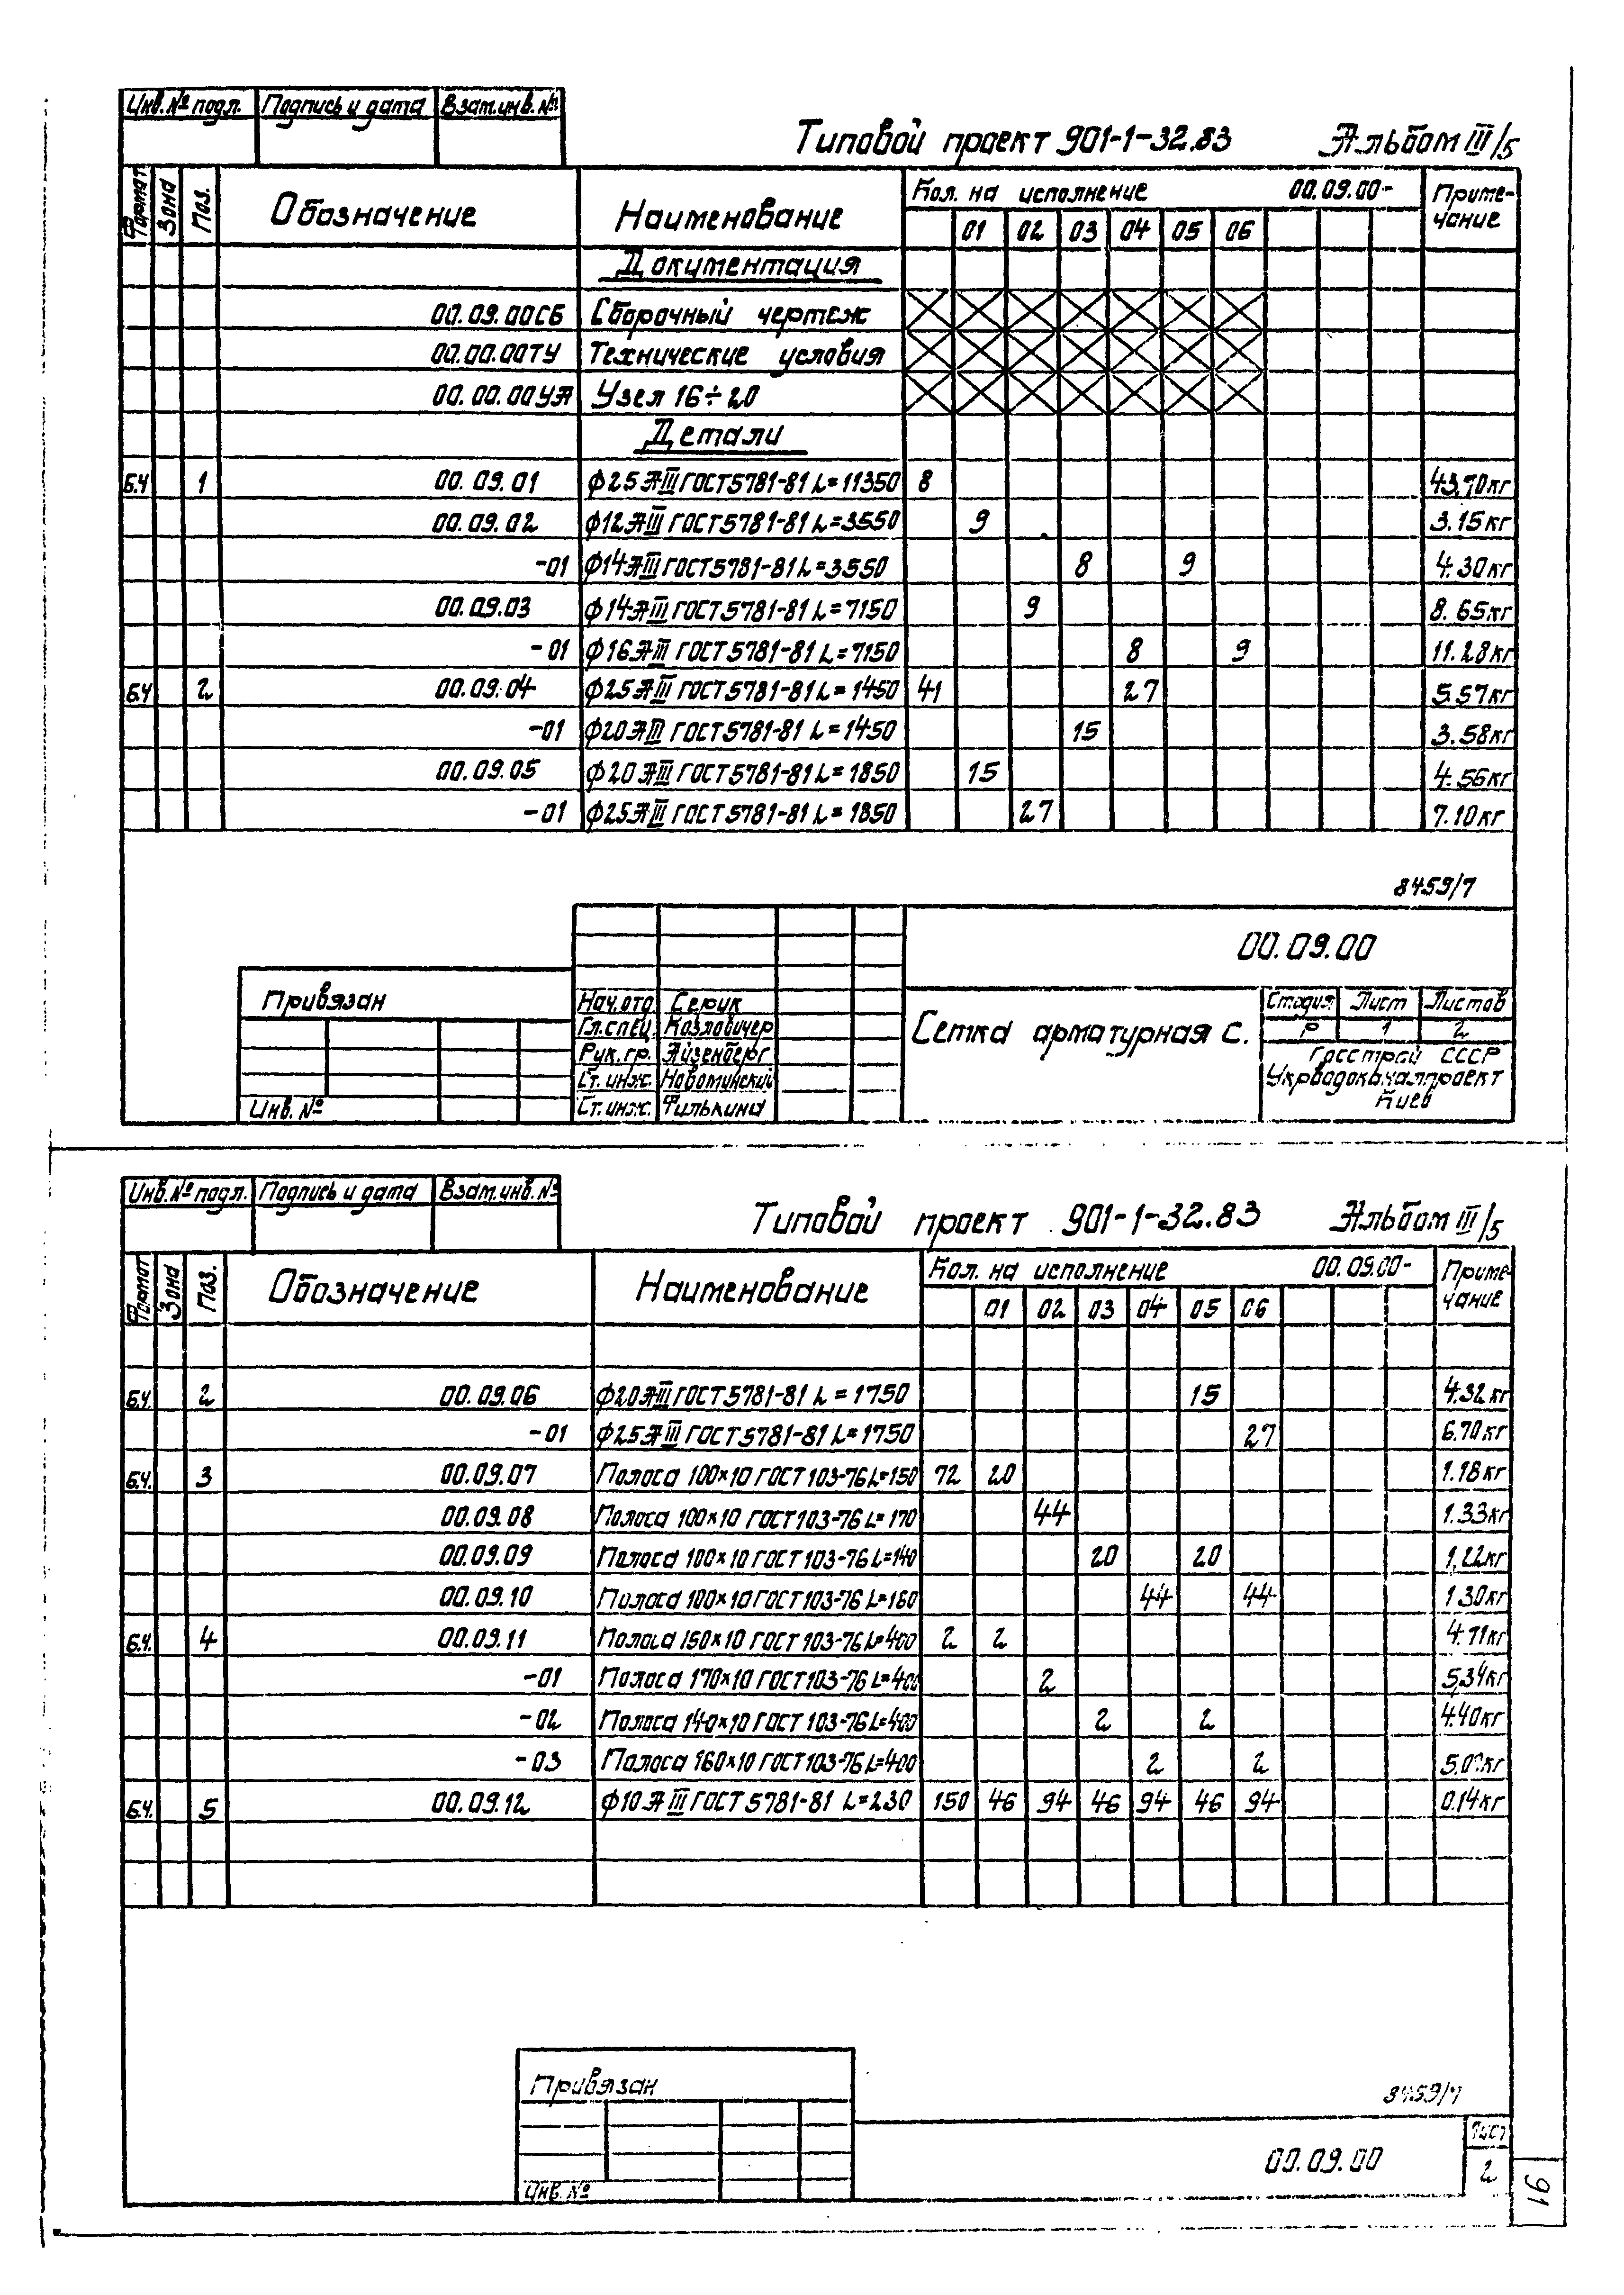 Инв.№ подл. Подпись и дата Взам.инв.№
Типовой проект 901-1-32.83 Альбом III/5
Формат Зона Поз. Обозначение Наименование Кол. на исполнение 00.09.00- Приме-
чание
01 02 03 04 05 06
Документация
00.09.00СБ Сборочный чертеж
00.00.00ТУ Технические условия
00.00.00УЛ Узел 16÷20
Детали
Б.Ч 1 00.09.01 ф25АIII ГОСТ5781-81 L=11350 8 43,70кг
00.09.02 ф12АIII ГОСТ5781-81 L=3550 9 3.15кг
-01 ф14АIII ГОСТ5781-81 L=3550 8 9 4.30кг
00.09.03 ф14АIII ГОСТ5781-81 L=7150 9 8.65кг
-01 ф16АIII ГОСТ5781-81 L=7150 8 9 11.28кг
Б.Ч 2 00.09.04 ф25АIII ГОСТ5781-81 L=1450 41 27 5.57кг
-01 ф20АIII ГОСТ5781-81 L=1450 15 3.58кг
00.09.05 ф20АIII ГОСТ5781-81 L=1850 15 4.56кг
-01 ф25АIII ГОСТ5781-81 L=1850 27 7.10кг
8459/7
00.09.00
Привязан
Инв. №
Нач.отд Серик
Гл.спец. Козловичер
Рук.гр. Айзенберг
Ст.инж. Новоминский
Ст.инж. Филькина
Сетка арматурная С.
Стадия Лист Листов
Р 1 2
Госстрой СССР
Укрводоканалпроект
Киев
Инв.№ подл. Подпись и дата Взам.инв.№
Типовой проект 901-1-32.83 Альбом III/5
Формат Зона Поз. Обозначение Наименование Кол. на исполнение 00.09.00- Приме-
чание
01 02 03 04 05 06
Б.Ч. 2 00.09.06 ф20АIII ГОСТ5781-81 L=1750 15 4.32кг
-01 ф25АIII ГОСТ5781-81 L=1750 27 6.70кг
Б.Ч. 3 00.09.07 Полоса 100×10 ГОСТ103-76 L=150 72 20 1.18кг
00.09.08 Полоса 100×10 ГОСТ103-76 L=170 44 1.33кг
00.09.09 Полоса 100×10 ГОСТ103-76 L=140 20 20 1,22кг
00.09.10 Полоса 100×10 ГОСТ103-76 L=160 44 44 1.30кг
Б.Ч. 4 00.09.11 Полоса 150×10 ГОСТ103-76 L=400 2 2 4.71кг
-01 Полоса 170×10 ГОСТ103-76 L=400 2 5,34кг
-02 Полоса 140×10 ГОСТ103-76 L=400 2 2 4.40кг
-03 Полоса 160×10 ГОСТ103-76 L=400 2 2
Б.Ч. 5 00.09.12 ф10АIII ГОСТ5781-81 L=230 150 46 94 46 94 46 94 0.14кг
Привязан
Инв. №
8459/7
00.09.00
Лист
2
91